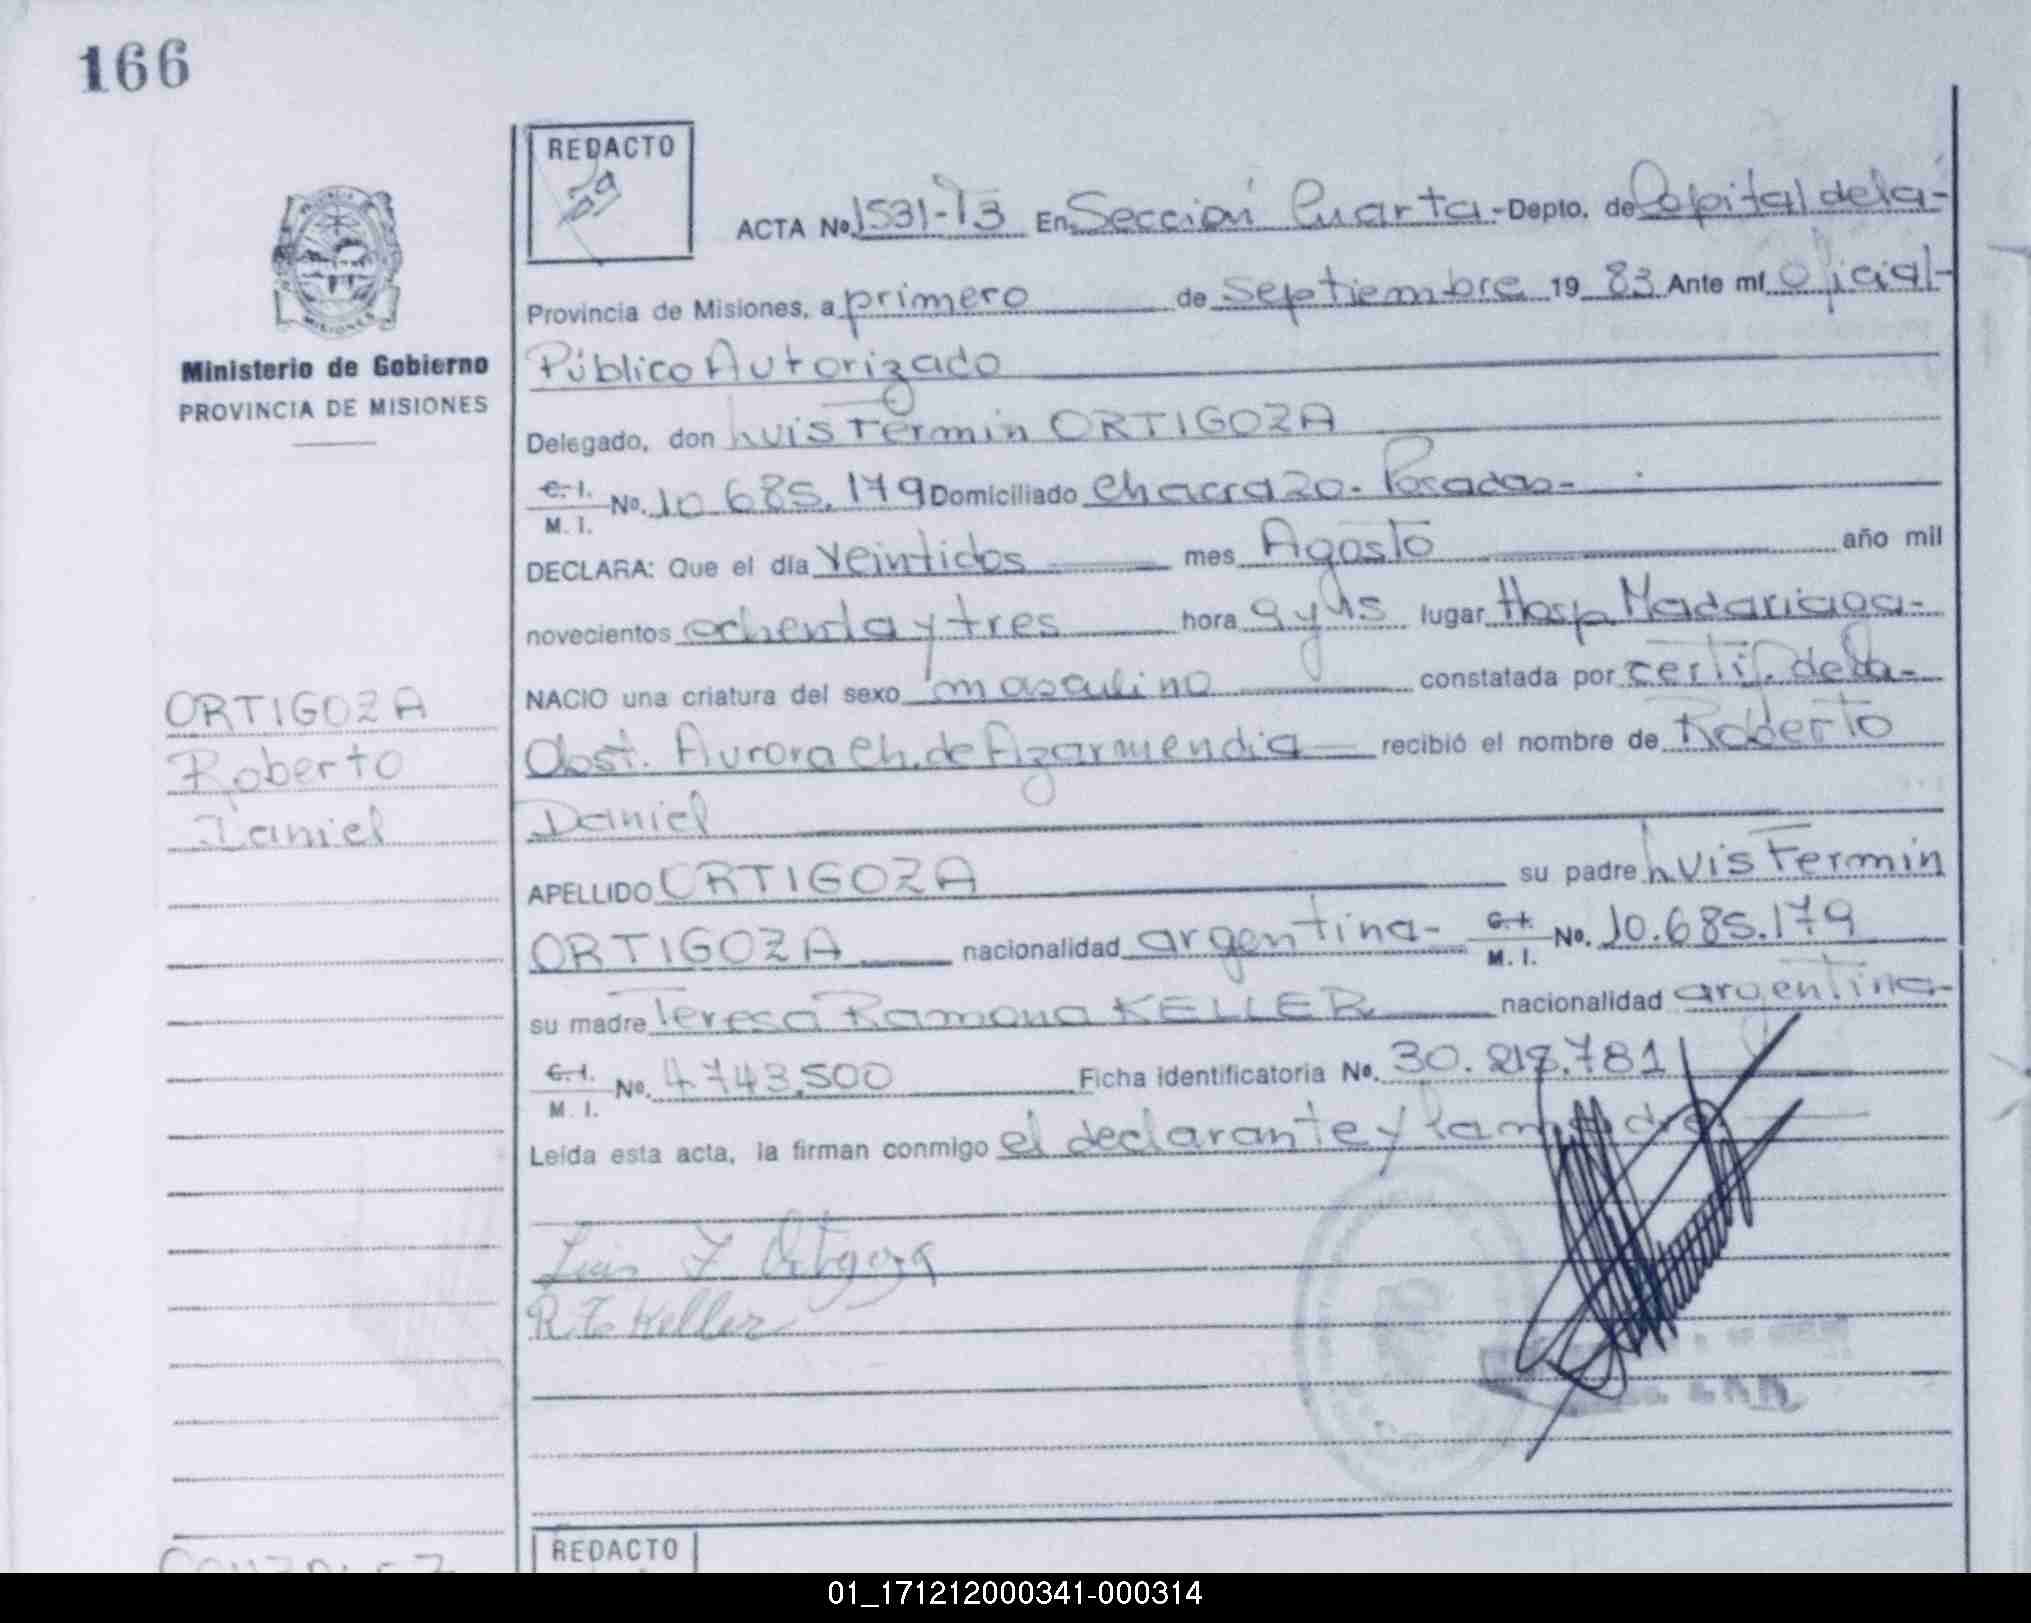 166
REDACTO
ACTA No. 1531-T3 En Sección Cuarta - Depto. de Capital de la-
Provincia de Misiones, a primero de septiembre 19 83 Ante mí Oficial-
Público Autorizado
Ministerio de Gobierno
PROVINCIA DE MISIONES
Delegado, don Luis Fermin ORTIGOZA
C. I.
M. I. No. 10.685.179 Domiciliado Chacra 20. Posadas-
DECLARA: Que el día veintidos mes Agosto año mil
novecientos ochenta y tres hora 9 y 45 lugar Hosp Madariaga-
NACIO una criatura del sexo masculino constatada por certif. de la-
Obst. Aurora Ch. de Azarmendia recibió el nombre de Roberto
Daniel
ORTIGOZA
Roberto
Daniel
APELLIDO ORTIGOZA su padre Luis Fermin
ORTIGOZA nacionalidad argentina- C. I.
M. I. No. 10.685.179
su madre Teresa Ramona KELLER nacionalidad argentina-
C. I.
M. I. No. 4.743.500 Ficha identificatoria No. 30.218.781
Leída esta acta, la firman conmigo el declarante y la madre
Luis F Ortigoza
R.T. Keller
REDACTO
01_171212000341-000314